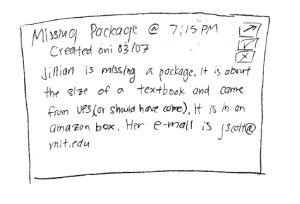 Missing Package @ 7:15 PM
Created on: 03/07
Jillian is missing a package. It is about
the size of a textbook and came
from UPS (or should have come). It is in an
amazon box. Her e-mail is jscott@
mit.edu